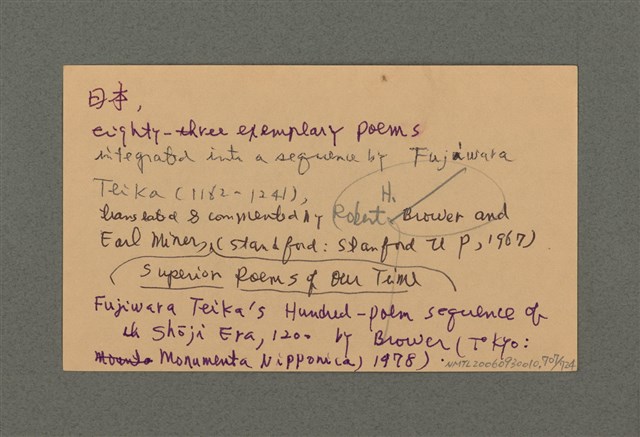 日本,
eighty-three exemplary poems
integrated into a sequence by Fujiwara
Teika (1162-1241),
translated & commented by Robert H. Brower and
Earl Miner, (Standford: Stanford U P, 1967)
Superior Poems of Our Time
Fujiwara Teika's Hundred-poem sequence of
the Shōji Era, 1200 by Brower (Tokyo:
Monumenta Nipponica, 1978).
NMTL20060930010.707/724